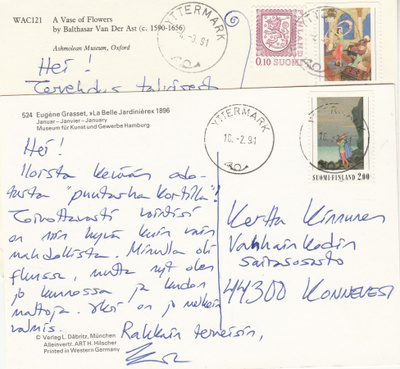 WAC121
A Vase of Flowers
by Balthasar Van Der Ast (c. 1590-1656)
Ashmolean Museum, Oxford
YTTERMARK
10.-2.91
0.10 SUOMI FINLAND
Hei!
Tervehdys talvisesta
524 Eugène Grasset, »La Belle Jardinière« 1896
Januar - Janvier - January
Museum für Kunst und Gewerbe Hamburg
YTTERMARK
10.-2.91
SUOMI FINLAND 2,00
Hei!
Iloista kevään odo-
tusta "puutarha kortilla"!
Toivottavasti vointisi
on niin hyvä kuin vain
mahdollista. Minulla oli
flunssa, mutta nyt olen
jo kunnossa ja kudon
mattoja. Yksi on jo melkein
valmis.
Rakkain terveisin,
Kerttu Kinnunen
Vanhainkodin
sairasosasto
44300 KONNEVESI
© Verlag L. Däbritz, München
Alleinvertr. ART H. Hilscher
Printed in Western Germany